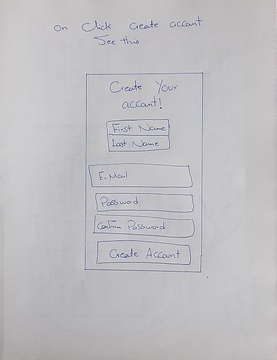 on Click create account
See this
Create Your
account!
First Name
Last Name
E-Mail
Password
Confirm Password
Create Account